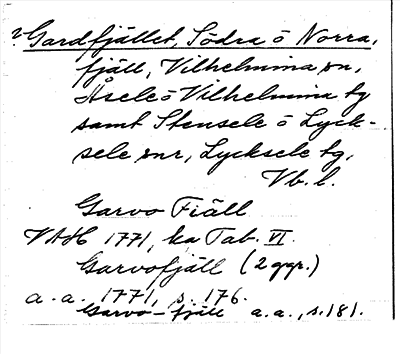 ? Gardfjället, Södra o Norra,
fjäll, Vilhelmina sn,
Åsele o Vilhelmina tg
samt Stensele o Lyck-
sele snr, Lycksele tg,
Vb. l.
Garvo Fiäll
VAH 1771, ka Tab. VI.
Garvofjäll (2 ggr.)
a. a. 1771, s. 176.
Garvo-fjäll a. a., s. 181.